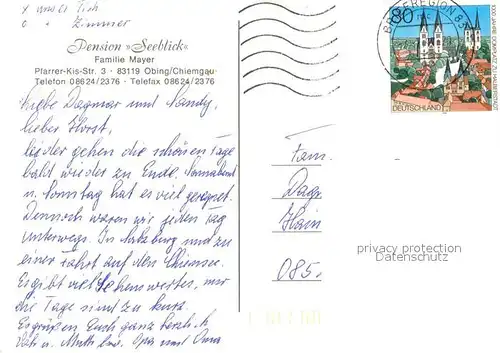 x unser Tisch
o " Zimmer
Pension »Seeblick«
Familie Mayer
Pfarrer-Kis-Str. 3 · 83119 Obing/Chiemgau
Telefon 08624/2376 · Telefax 08624/2376
Liebe Dagmar und Mandy,
lieber Horst,
leider gehen die schönen Tage
bald wieder zu Ende. Sonnabend
u. Sonntag hat es viel geregnet.
Dennoch waren wir jeden Tag
unterwegs. In Salzburg und zu
einer Fahrt auf den Chiemsee.
Es gibt viel Sehenswertes, nur
die Tage sind zu kurz.
Es grüßen Euch ganz herzlich
u. Mutti bzw. Opa und Oma
80
1000 JAHRE DOMPLATZ ZU HALBERSTADT
DEUTSCHLAND
BRIEFREGION 83
Fam.
Dag.
Hain
085.
privacy protection
Datenschutz